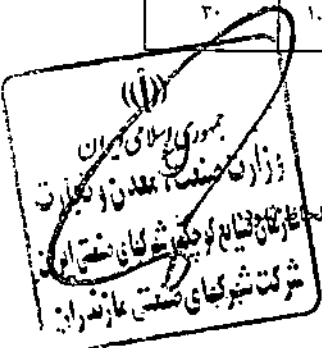 ۳۰ ۱۰
جمهوری اسلامی ایران
وزارت صنعت، معدن و تجارت
سازمان صنایع کوچک و شهرکهای صنعتی ایران
لحاظ
شرکت شهرکهای صنعتی مازندران